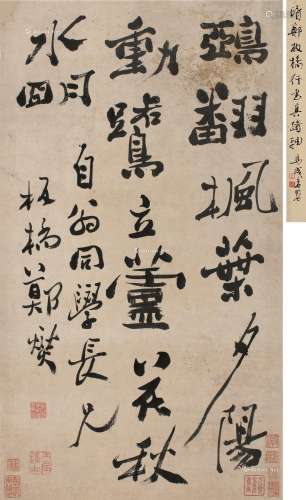 鵶翻楓葉夕陽
動鷺立蘆花秋
水明
自翁同學長兄
板橋鄭燮
鄭板橋行書真蹟